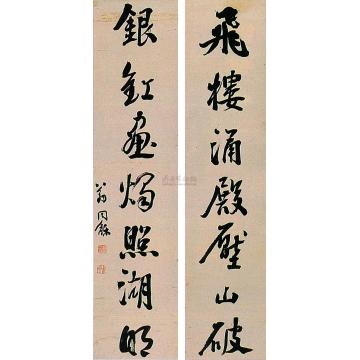 飛樓涌殿壓山破
銀釭畫燭照湖明
翁同龢